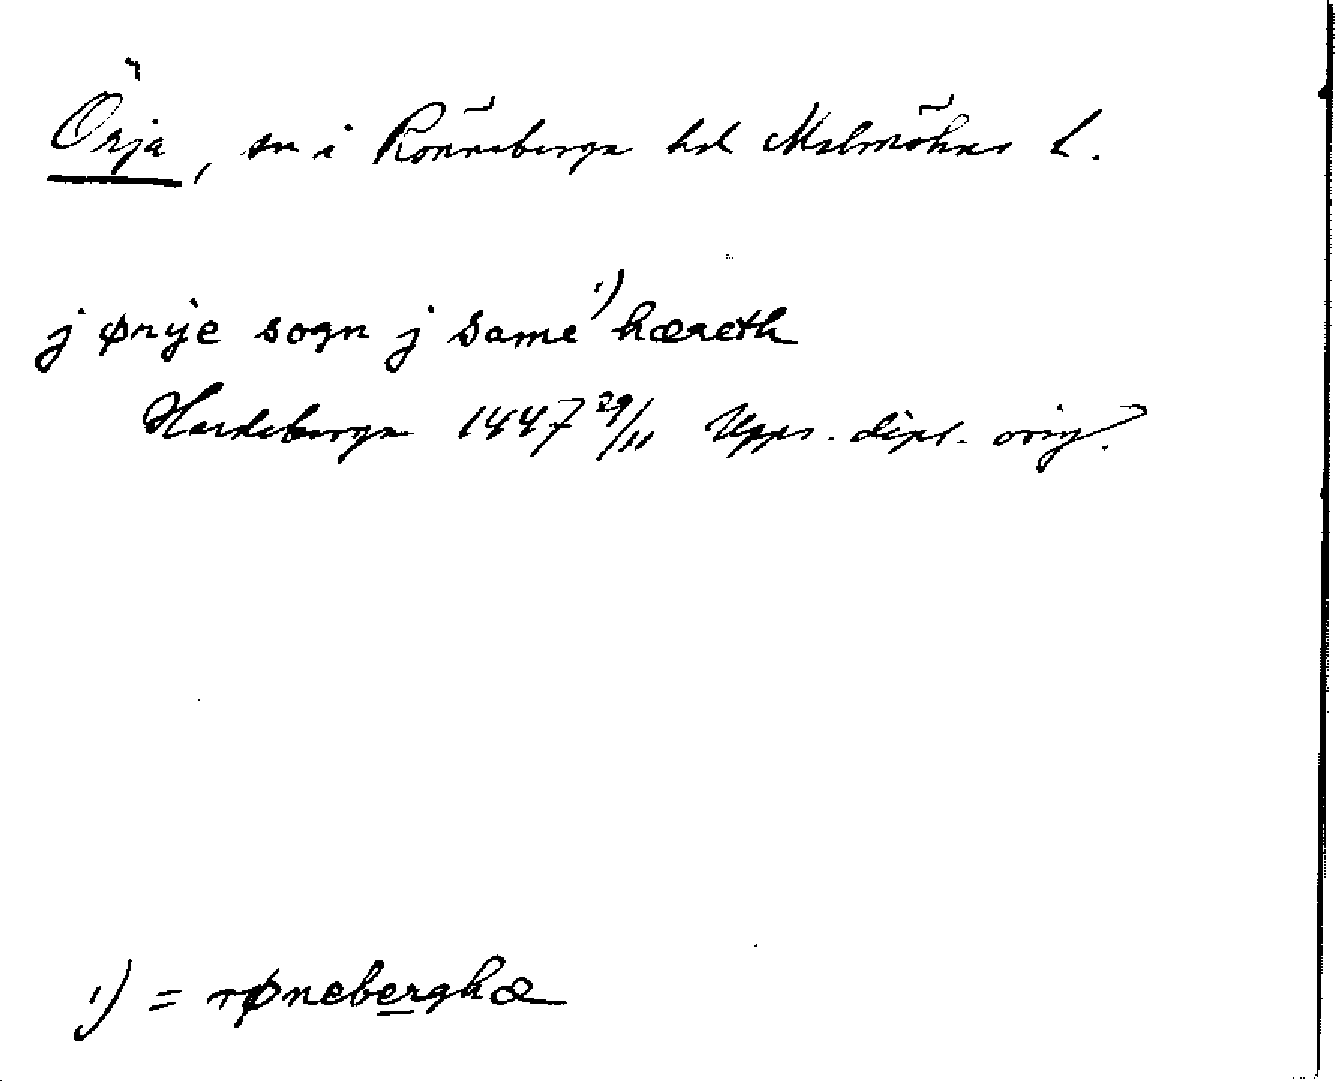 Örja, sn i Rönnebergs hd Malmöhus l.
j ørije sogn j same ¹) hæreth
Hardeberga 1447 29/11 Upps. dipl. orig.
¹) = rønebærghæ